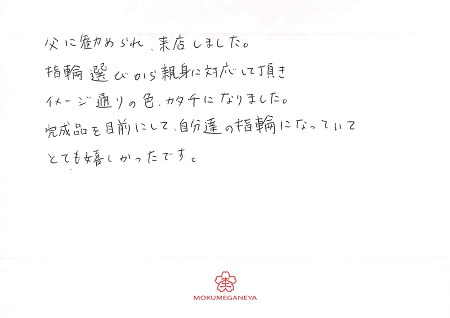 父に勧められ、来店しました。
指輪選びから親身に対応して頂き
イメージ通りの色、カタチになりました。
完成品を目前にして、自分達の指輪になっていて
とても嬉しかったです。
杢
MOKUMEGANEYA